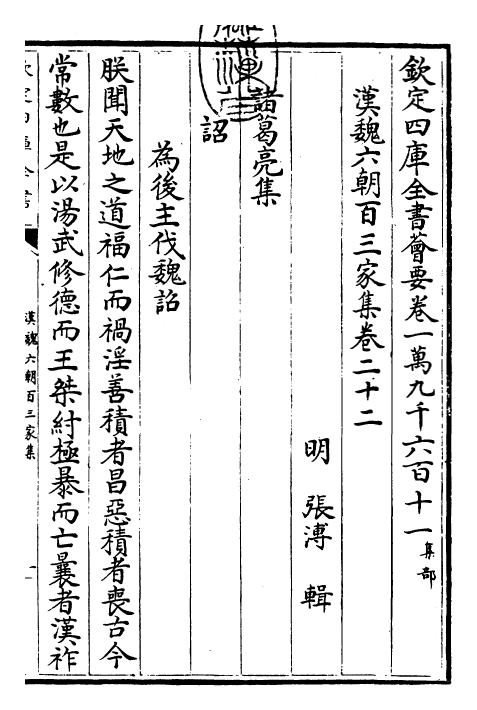 欽定四庫全書薈要卷一萬九千六百十一集部
漢魏六朝百三家集卷二十二
明 張溥 輯
諸葛亮集
詔
為後主伐魏詔
朕聞天地之道福仁而禍淫善積者昌惡積者喪古今
常數也是以湯武修德而王桀紂極暴而亡曩者漢祚
漢魏六朝百三家集
一